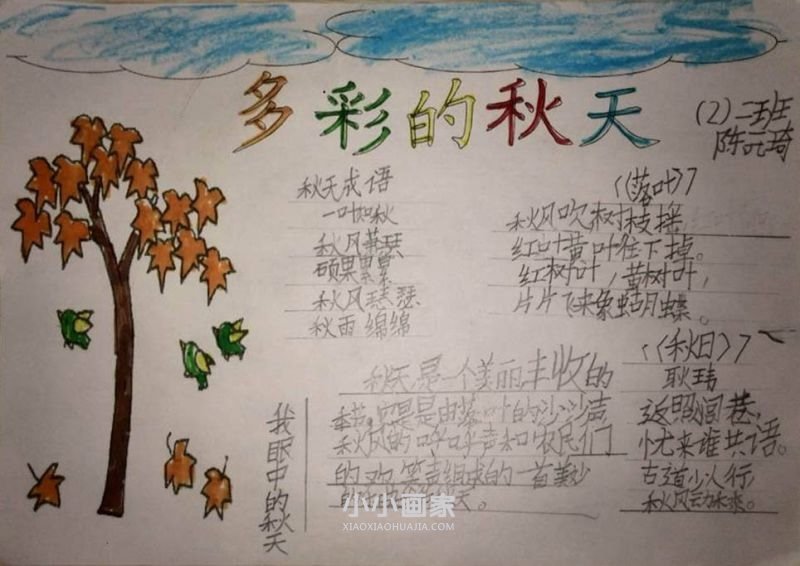 多彩的秋天
(2)二班
陈元琦
秋天成语
一叶知秋
秋风萧瑟
硕果累累
秋风瑟瑟
秋雨绵绵
《落叶》
秋风吹树枝摇
红叶黄叶往下掉。
红树叶，黄树叶，
片片飞来象蝴蝶。
我眼中的秋天
秋天是一个美丽丰收的
季节，它是由落叶的沙沙声
秋风的呼呼声和农民们
的欢笑声组成的一首美妙
天。
《秋日》
耿玮
返照闾巷，
忧来谁共语。
古道少人行，
秋风动禾黍。
小小画家
XIAOXIAOHUAJIA.COM